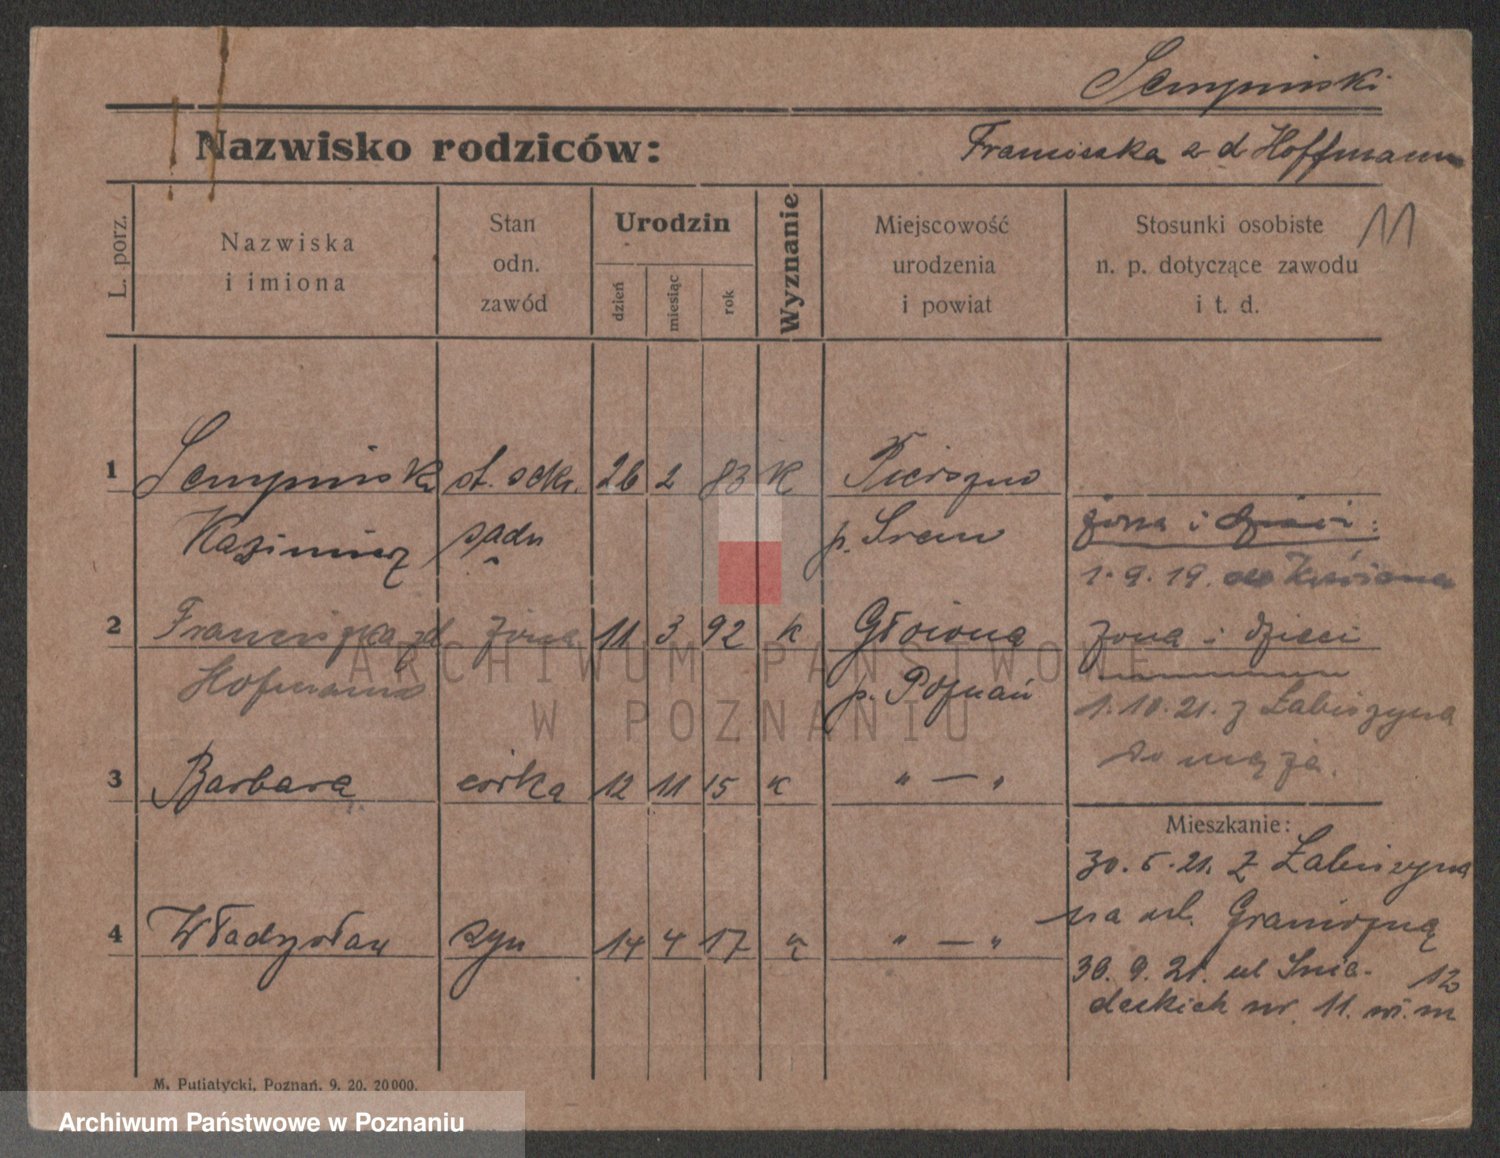 Sempinski
Nazwisko rodziców:
Franciszka z d Hoffmann
L. porz.
Nazwiska
i imiona
Stan
odn.
zawód
Urodzin
dzień
miesiąc
rok
Wyznanie
Miejscowość
urodzenia
i powiat
Stosunki osobiste
n. p. dotyczące zawodu
i t. d.
11
1 Sempinski st. sekr. 26 2 83 K
Kazimierz sądu p. Srem
żona i dzieci:
1.9.19. do
2 Franciszka zd żona 11 3 92 K Główna żona i dzieci
Hofmann p. Poznań
1.10.21. z Łabiszyna
do męża.
3 Barbara córka 12 11 15 K " — "
Mieszkanie:
30.5.21. z Łabiszyna
na ul. Graniczną
4 Władysław syn 14 4 17 K " — "
30.9.21. ul Śnia- 12
deckich nr. 11. m
M. Putiatycki, Poznań. 9. 20. 20000.
ARCHIWUM PAŃSTWOWE
W POZNANIU
Archiwum Państwowe w Poznaniu